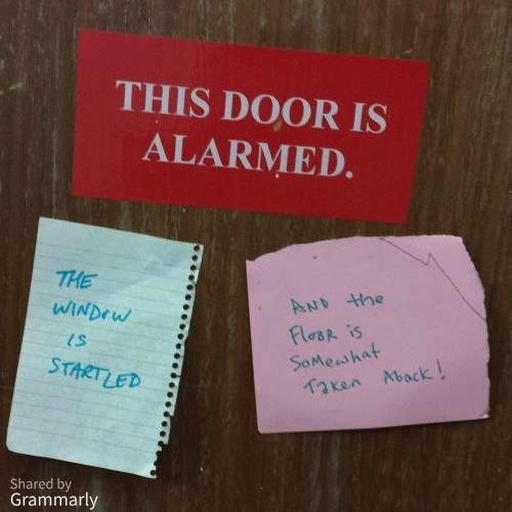 THIS DOOR IS
ALARMED.
THE
WINDOW
IS
STARTLED
AND the
FLOOR is
SOMewhat
TAKen ABack!
Shared by
Grammarly